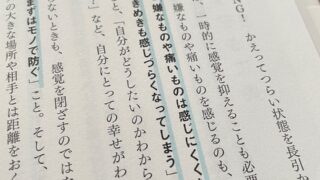 NG!
かえってつらい状態を長引か
、一時的に感覚を抑えることも必要
嫌なものや痛いものを感じるのも、
嫌なものや痛いものは感じにくく、
きめきも感じづらくなってしまう」
と、「自分がどうしたいのかわから
」など、自分にとっての幸せがわ
ないときも、感覚を閉ざすのではな
まずはモノで防ぐ」こと。そして、
の大きな場所や相手とは距離をおく